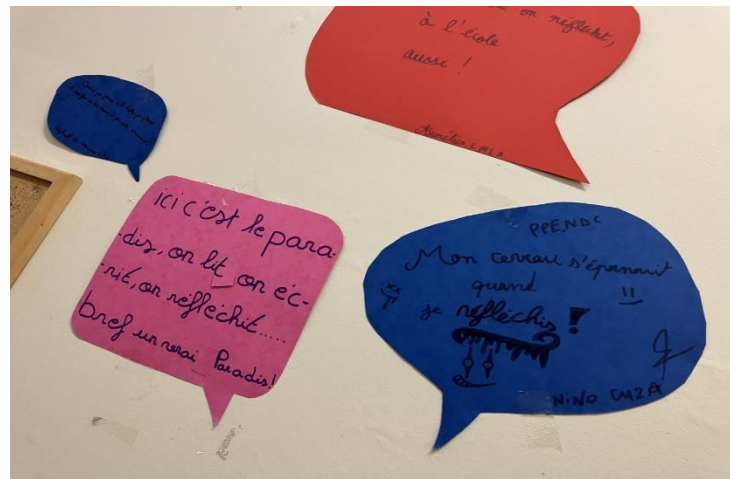 on réfléchit,
à l'école
aussi !
Aurélien CM2A
ici c'est le para-
-dis, on lit on éc-
-rit, on réfléchit.....
bref un vrai Paradis!
PPENDC
Mon cerveau s'épanouit
quand
je réfléchis !
NiNO CM2A